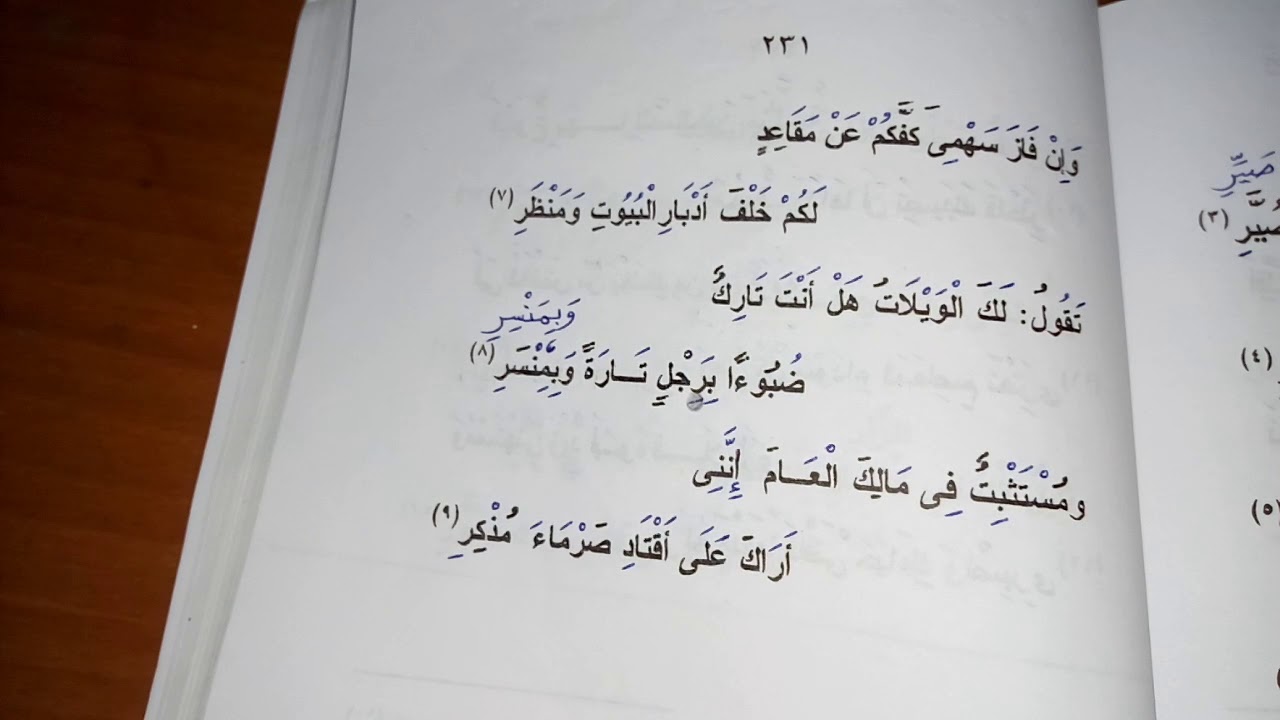 ٢٣١
وَإِنْ فَازَ سَهْمِى كَفَّكُمْ عَنْ مَقَاعِدٍ
لَكُمْ خَلْفَ أَدْبَارِ الْبُيُوتِ وَمَنْظَرِ (٧)
تَقُولُ: لَكَ الْوَيْلَاتُ هَلْ أَنْتَ تَارِكٌ
وَبِمَنْسِرِ
ضُبُوءًا بِرَجْلٍ تَارَةً وَبِمِنْسَرِ (٨)
ومُسْتَثْبِتٌ فِى مَالِكَ الْعَامَ إِنَّنِى
أَرَاكَ عَلَى أَقْتَادِ صَرْمَاءَ مُذْكِرِ (٩)
صَيِّرِ
(٣)
(٤)
(٥)